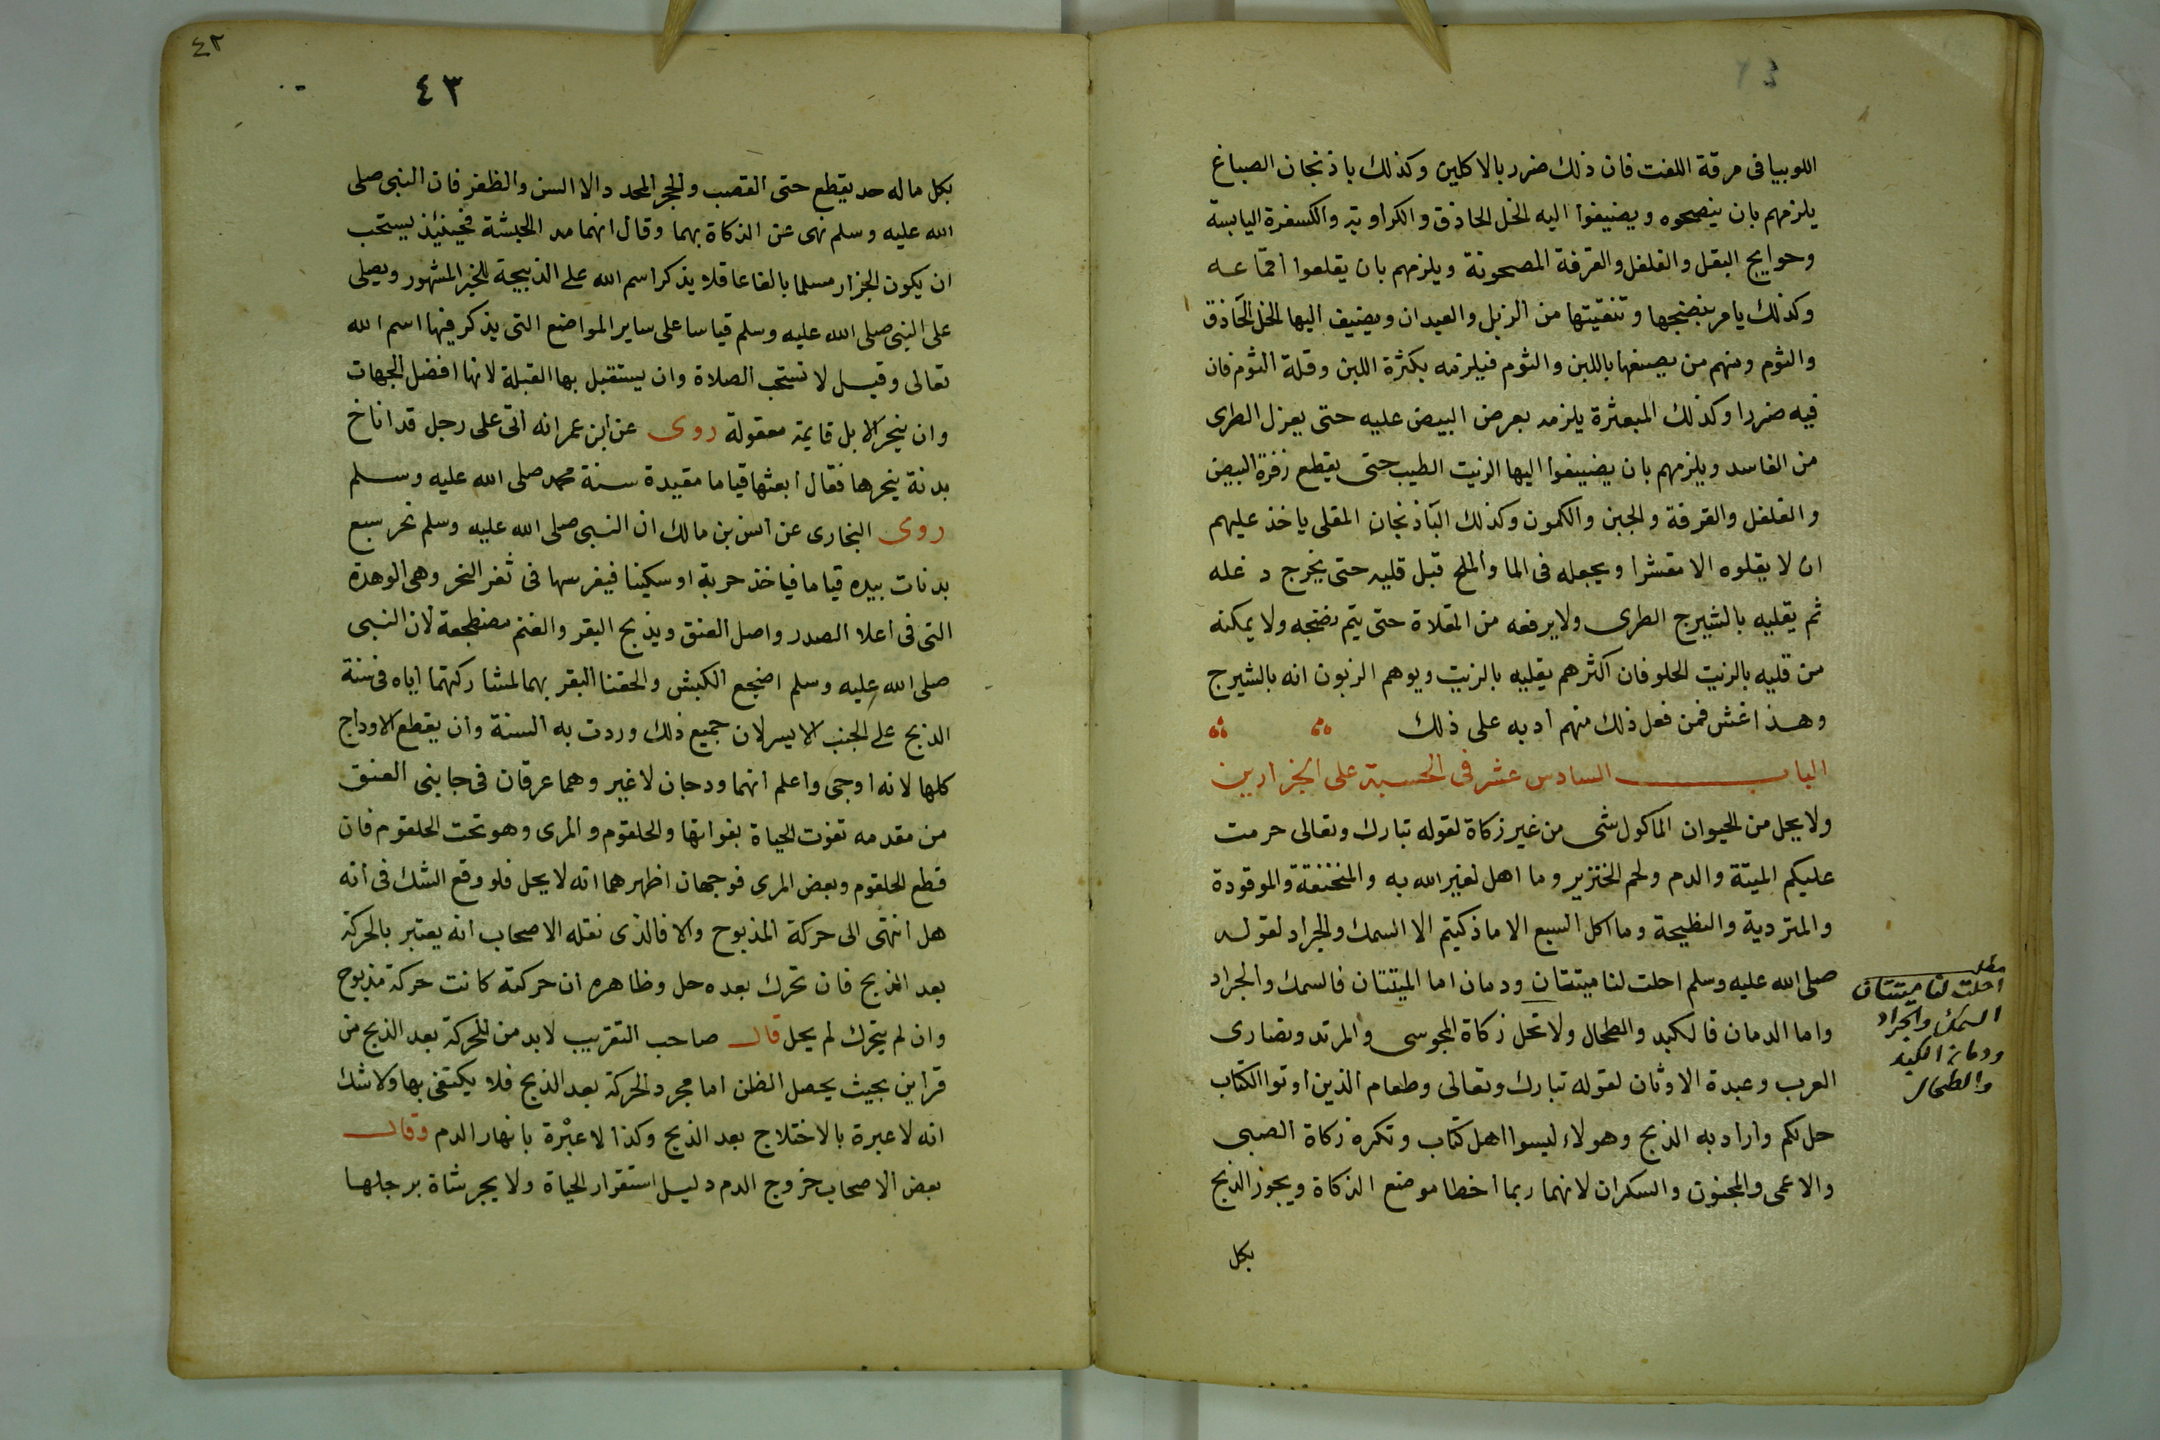 اللوبيا فى مرقة اللفت فان ذلك ضرر بالاكلين وكذلك باذنجان الصباغ
يلزمهم بان ينضجوه ويضيفوا اليه الخل الحاذق والكراويه والكسفرة اليابسة
وحوايج البقل والفلفل والقرفة المصحونة ويلزمهم بان يقلعوا اقماعه
وكذلك يامر بنضجها وتنقيتها من الزبل والعيدان ويضيف اليها الخل الحاذق
والثوم ومنهم من يصنعها باللبن والثوم فيلزمه بكثرة اللبن وقلة الثوم فان
فيه ضررا وكذلك المبعثرة يلزمه بعرض البيض عليه حتى يعزل الطرى
من الفاسد ويلزمهم بان يضيفوا اليها الزيت الطيب حتى يقطع زفرة البيض
والفلفل والقرفة والجبن والكمون وكذلك الباذنجان المقلى ياخذ عليهم
ان لا يقلوه الا مقشرا ويجعله فى الما والملح قبل قليه حتى يخرج دغله
ثم يقليه بالشيرج الطرى ولا يرفعه من المقلاة حتى يتم نضجه ولا يمكنه
من قليه بالزيت الحلو فان اكثرهم يقليه بالزيت ويوهم الزبون انه بالشيرج
وهذا غش فمن فعل ذلك منهم ادبه على ذلك
الباب السادس عشر فى الحسبة على الجزارين
ولا يحل من الحيوان الماكول شى من غير زكاة لقوله تبارك وتعالى حرمت
عليكم الميتة والدم ولحم الخنزير وما اهل لغير الله به والمنخنقة والموقودة
والمتردية والنطيحة وما اكل السبع الا ما ذكيتم الا السمك والجراد لقوله
صلى الله عليه وسلم احلت لنا ميتتان ودمان اما الميتتان فالسمك والجراد
واما الدمان فالكبد والطحال ولا تحل زكاة المجوسى والمرتد ونصارى
العرب وعبدة الاوثان لقوله تبارك وتعالى وطعام الذين اوتوا الكتاب
حل لكم واراد به الذبح وهولاء ليسوا اهل كتاب وتكره زكاة الصبى
والاعمى والمجنون والسكران لانهما ربما اخطا موضع الزكاة ويجوز الذبح
بكل
مطلب
احلت لنا ميتتان
السمك والجراد
ودمان الكبد
والطحال
٤٣
٤٣
بكل ما له حد يقطع حتى القصب والحجر المحدد الا السن والظفر فان النبى صلى
الله عليه وسلم نهى عن الزكاة بهما وقال انهما مد الحبشة فحينئذ يستحب
ان يكون الجزار مسلما بالغا عاقلا يذكر اسم الله على الذبيحة للخبر المشهور ويصلى
على النبى صلى الله عليه وسلم قياسا على ساير المواضع التى يذكر فيها اسم الله
تعالى وقيل لا تستحب الصلاة وان يستقبل بها القبلة لانها افضل الجهات
وان ينحر الابل قايمة معقولة روى عن ابن عمر انه اتى على رجل قد اناخ
بدنة ينحرها فقال ابعثها قياما مقيدة سنة محمد صلى الله عليه وسلم
روى البخارى عن انس بن مالك ان النبى صلى الله عليه وسلم نحر سبع
بدنات بيده قياما فياخذ حربة او سكينا فيغرسها فى ثغر النحر وهى الوهدة
التى فى اعلا الصدر واصل العنق ويذبح البقر والغنم مضطجعة لان النبى
صلى الله عليه وسلم اضجع الكبش والحقنا البقر بهما لمشاركتهما اياه فى سنة
الذبح على الجنب الايسر لان جميع ذلك وردت به السنة وان يقطع الاوداج
كلها لانه اوجى واعلم انهما ودجان لا غير وهما عرقان فى جانبى العنق
من مقدمه تفوت الحياة بفواتها والحلقوم والمرى وهو تحت الحلقوم فان
قطع الحلقوم وبعض المرى فوجهان اظهرهما انه لا يحل فلو وقع الشك فى انه
هل انتهى الى حركة المذبوح والا فالذى نقله الاصحاب انه يعتبر بالحركة
بعد الذبح فان تحرك بعده حل وظاهره ان حركته كانت حركة مذبوح
وان لم يتحرك لم يحل قال صاحب التقريب لا بد من للحركة بعد الذبح من
قراين بحيث يحصل الظن اما مجرد الحركة بعد الذبح فلا يكتفى بها ولا شك
انه لا عبرة بالاختلاج بعد الذبح وكذا لا عبرة بانهار الدم وقال
بعض الاصحاب خروج الدم دليل استقرار الحياة ولا يجر شاة برجلها